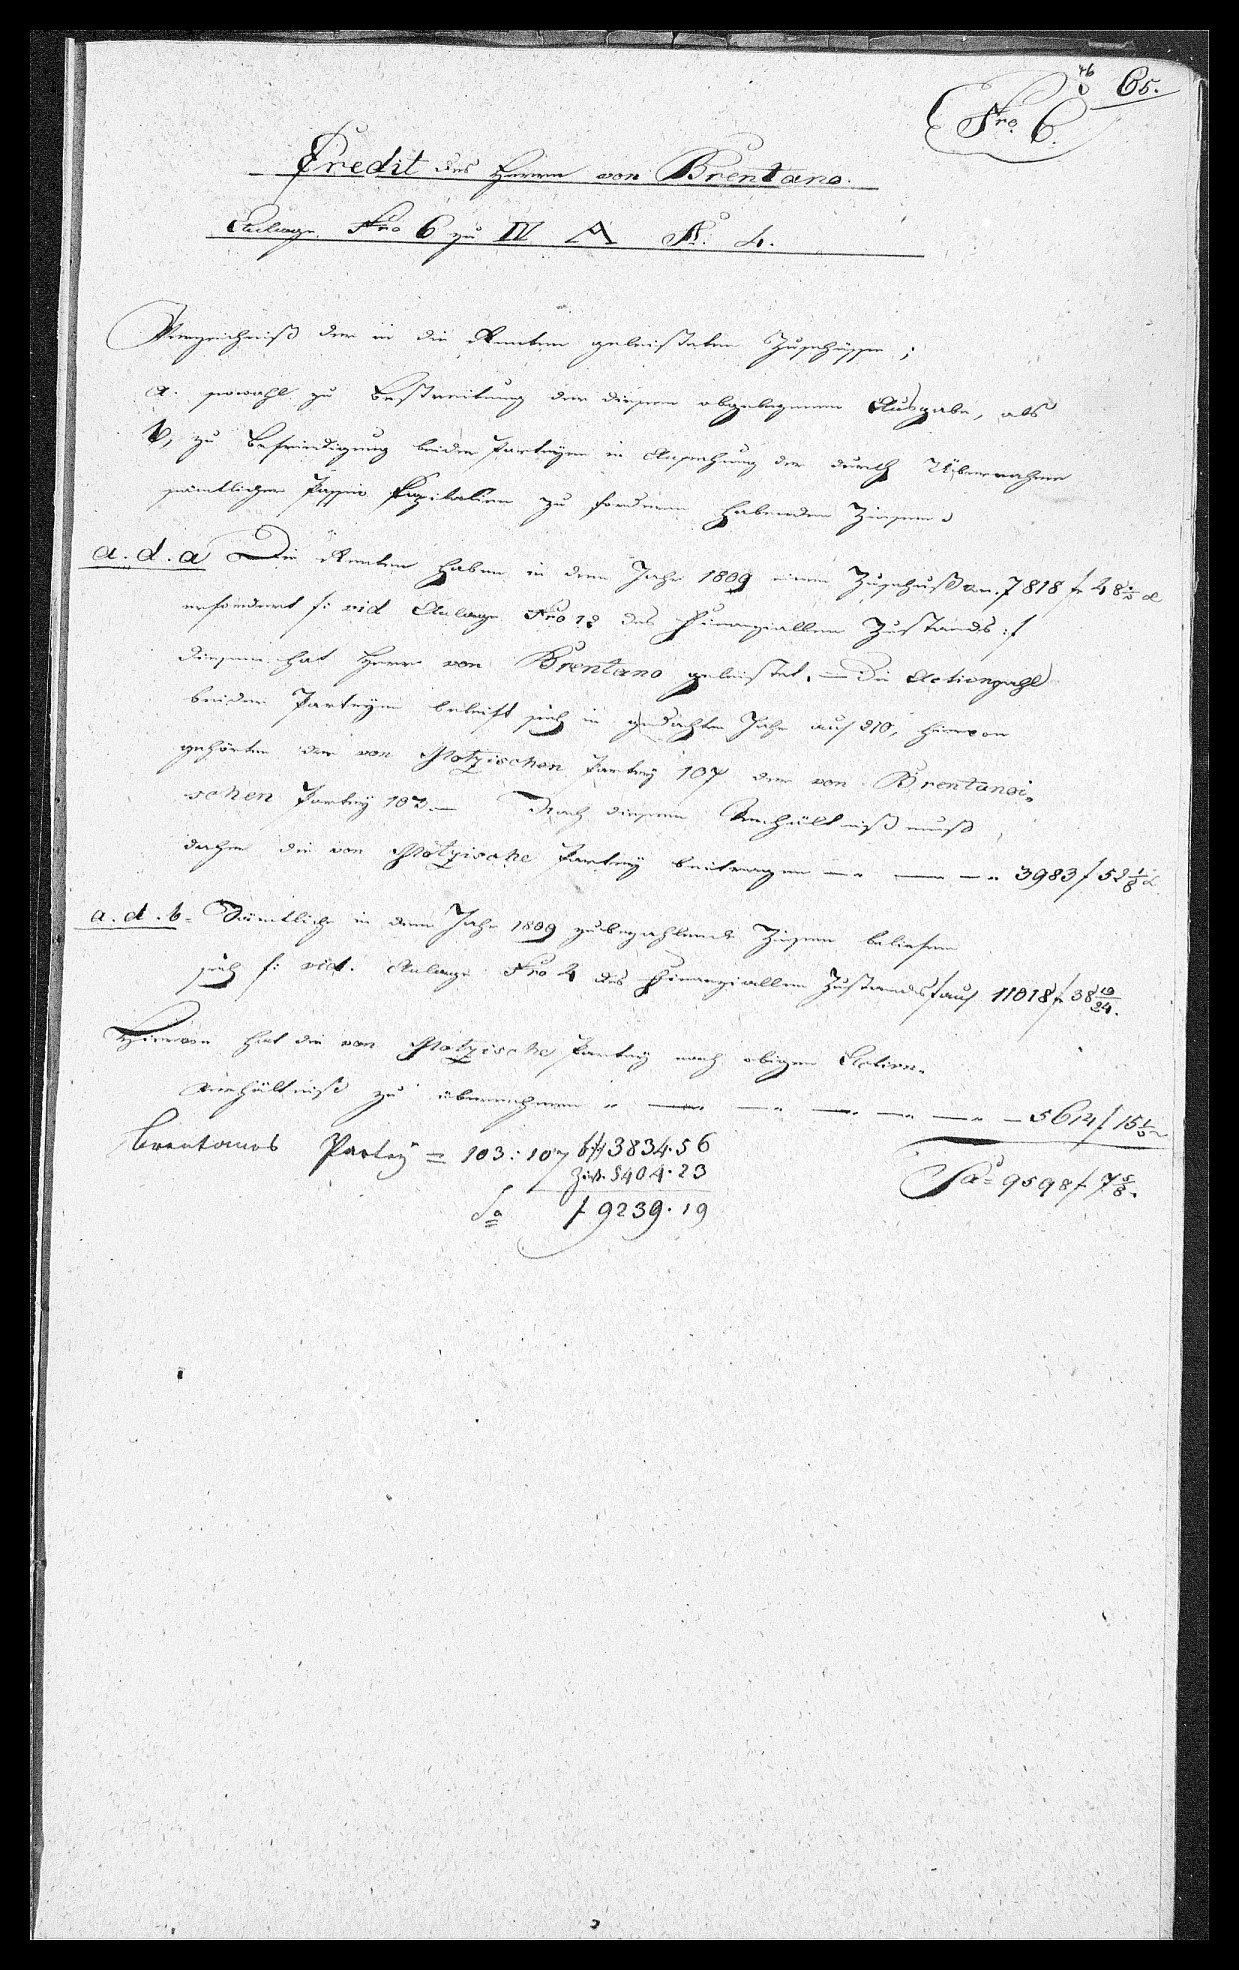 46
65.
Nro. 6.
Credit des Herrn von Brentano.
Anlage Nro 6 zu IV A N. 4.
Verzeichniß der in die Renten geleisteten Zuschüsse;
a. sowohl zu Bestreitung der diesen obgelegenen Ausgabe, als
b, zu Befriedigung beider Partheyen in Ansehung der durch Übernahme
sämtlicher Passiv Kapitalien zu fordern habenden Zinsen.
a. d. a Die Renten haben in dem Jahr 1809 einen Zuschuß von 7818 f 48
erfordert /: vid Anlage Nro 12 des Finanziellen Zustands :/
diesen hat Herr von Brentano geleistet. — Die Actienzahl
beider Partheyen belauft sich in gedachten Jahr auf 210, hievon
gehörten der von Motzischen Parthey 107 der von Brentanoi-
schen Parthey 103 — Nach diesem Verhältniß muß
daher die von Motzische Parthey beitragen — — — 3983 f 52 1/8
a. d. b. Sämtliche in dem Jahr 1809 zu bezahlende Zinsen beliefen
sich /: vid. Anlage Nro 4 des Finanziellen Zustands / auf 11018 f 38 19/24.
Hievon hat die von Motzische Parthey nach obigen Actien-
Verhältniß zu übernehmen — — — — — — 5614 f 15 1/2
Brentanos Partey = 103 : 107 3834.56
Zins. 5404.23
Sa f 9239.19
Sa = 9598 f 7 5/8.